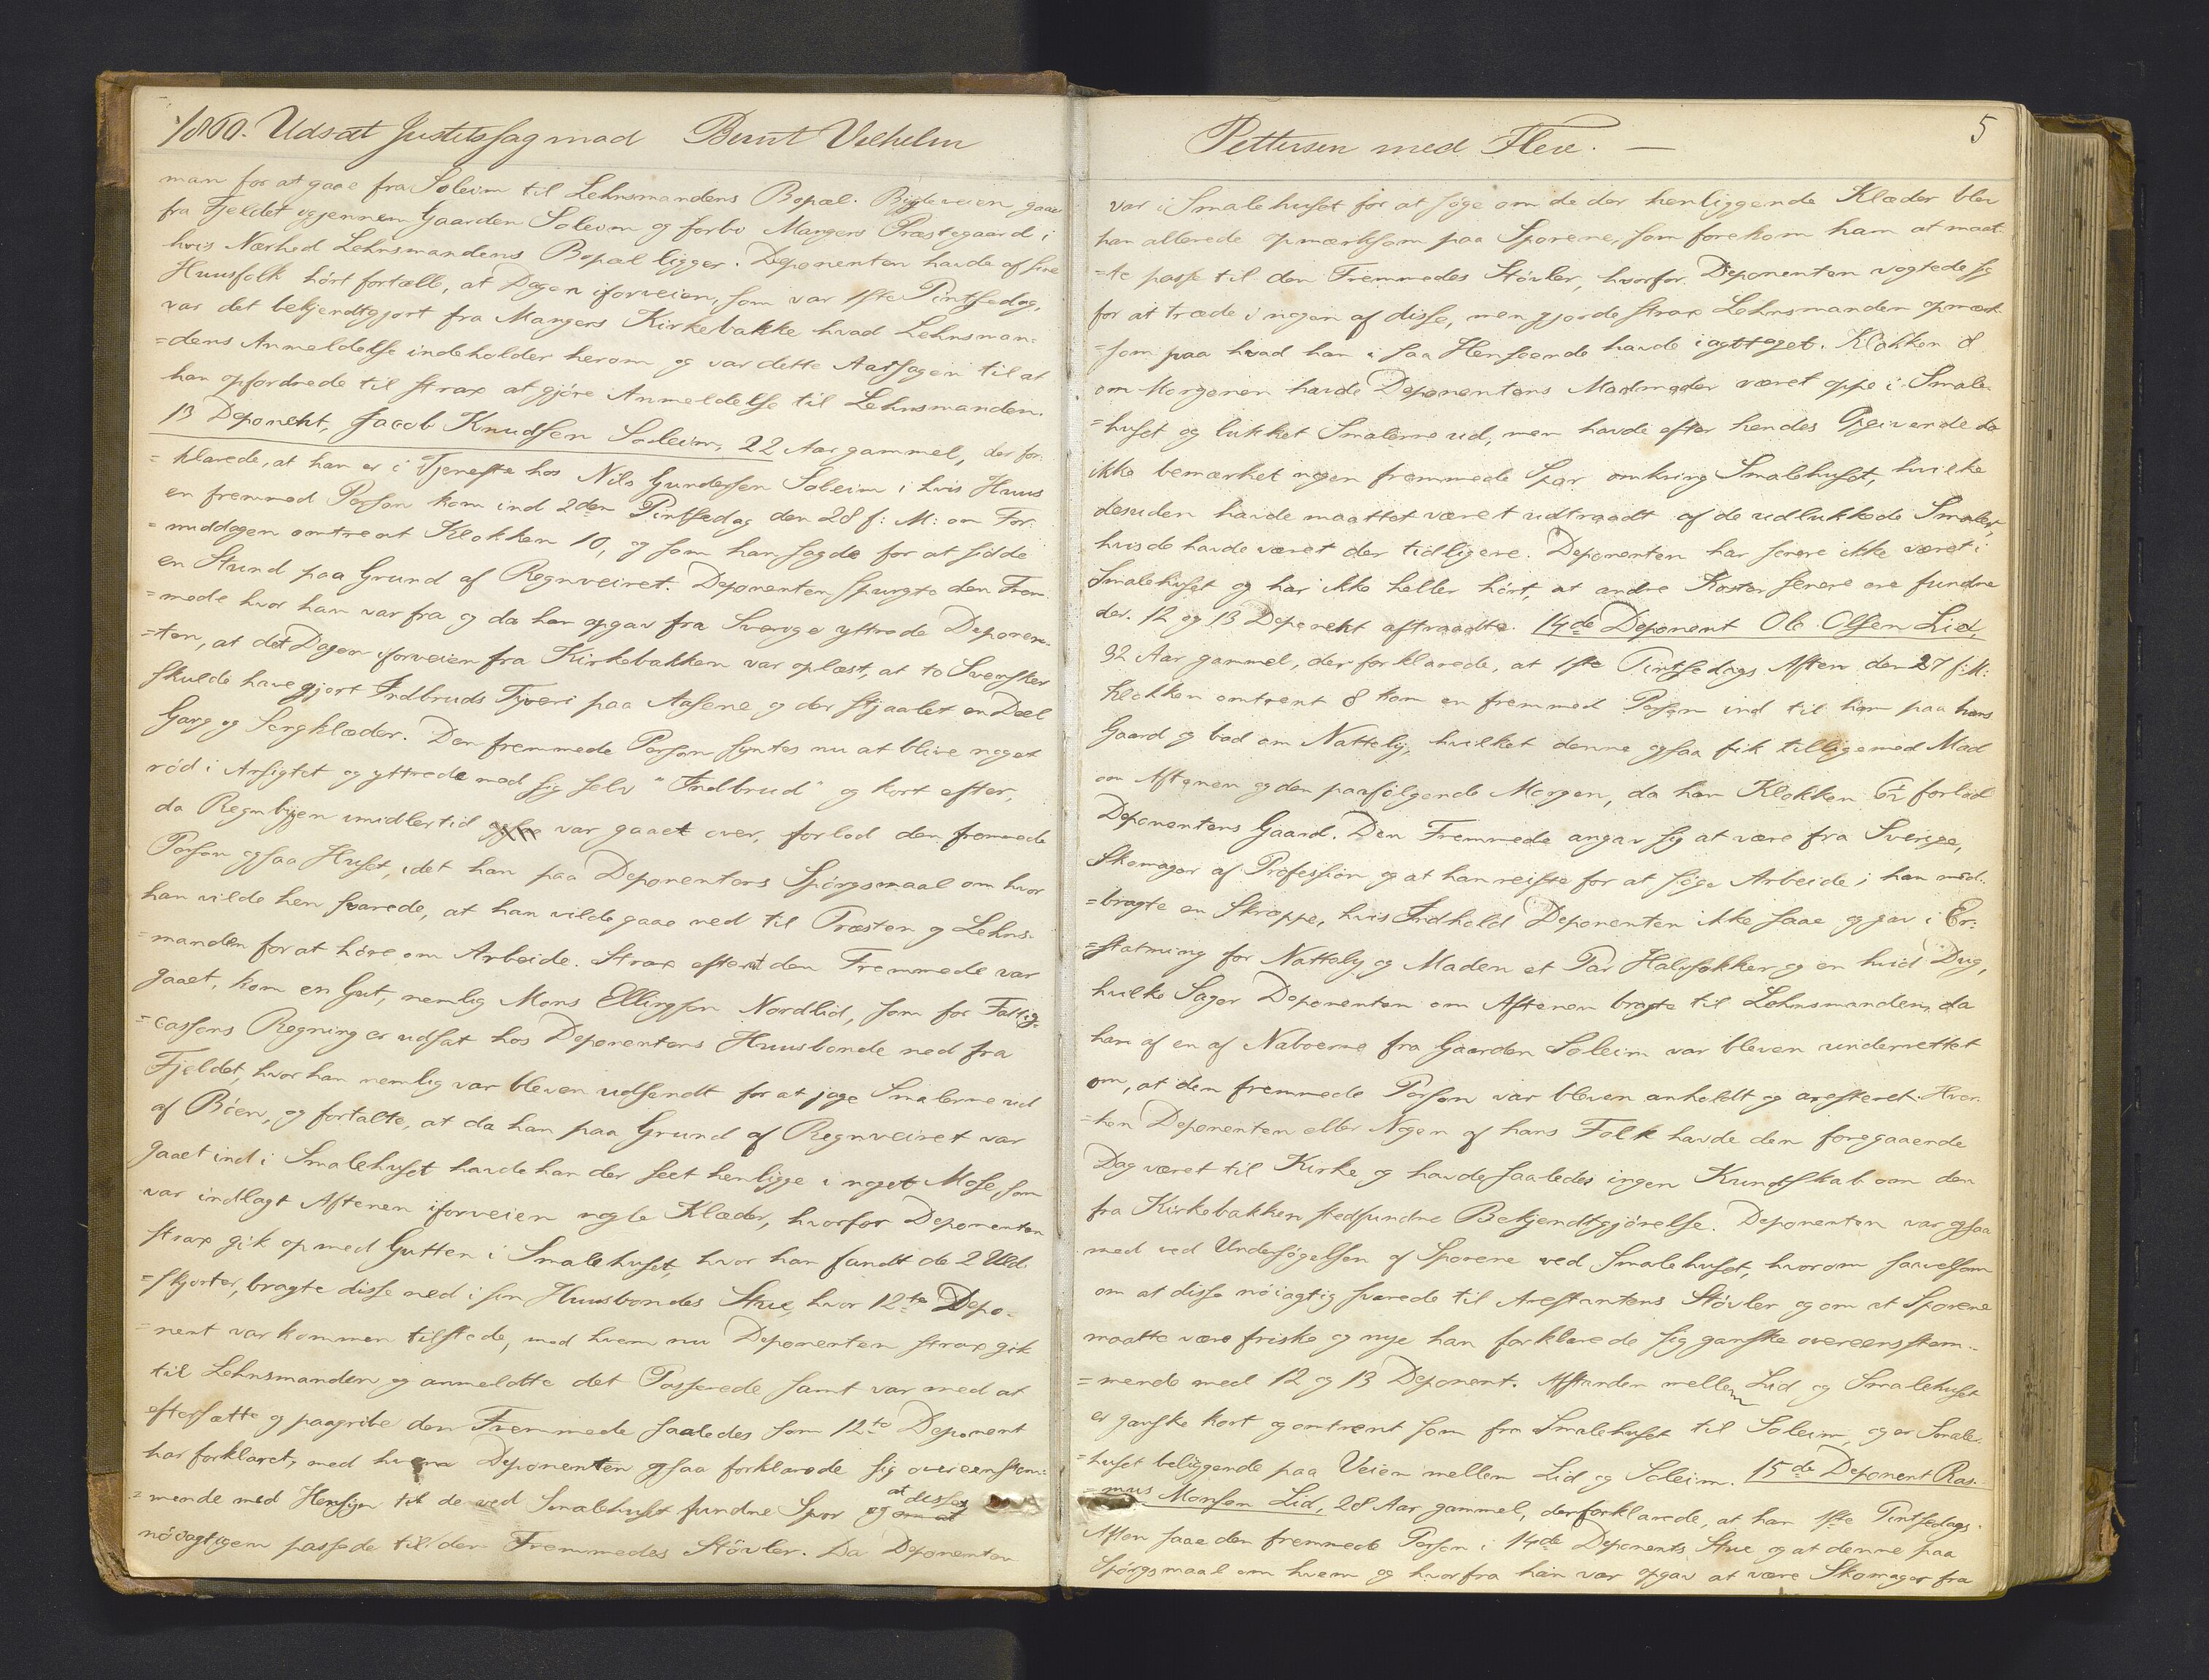 1860. Udsat Justitssag mod Bernt Vilhelm
man for at gaae fra Soleim til Lehnsmandens Bopæl. Bygdeveien gaaer
fra Fjeldet igjennem Gaarden Soleim og forbi Mangers Præstegaard i
hvis Nærhed Lehnsmandens Bopæl ligger. Deponenten havde af sine
Huusfolk hört fortælle, at Dagen iforveien, som var 1ste Pintsedag,
var det bekjendtgjort fra Mangers Kirkebakke hvad Lehnsman-
=dens Anmeldelse indeholder herom og var dette Aarsagen til at
han opfordrede til strax at gjöre Anmeldelse til Lehnsmanden.
13 Deponent, Jacob Knudsen Soleim, 22 Aar gammel, der for-
=klarede, at han er i Tjeneste hos Nils Gundersen Soleim i hvis Huus
en fremmed Person kom ind 2den Pintsedag den 28 f: M: om For-
=middagen omtrent Klokken 10, og som han sagde for at sidde
en Stund paa Grund af Regnveiret. Deponenten spurgte den Frem-
=mede hvor han var fra og da han opgav fra Sverge yttrede Deponen-
=ten, at det Dagen iforveien fra Kirkebakken var oplæst, at to Svensker
skulde have gjort Indbruds Tyveri paa Aasene og der stjaalet en Deel
Garg og Sengklæder. Den fremmede Person syntes nu at blive noget
röd i Ansigtet og yttrede med sig selv "Indbrud" og kort efter,
da Regnbygen imidlertid ogsaa var gaaet over, forlod den fremmede
Person ogsaa Huset, idet han paa Deponentens Spörgsmaal om hvor
han vilde hen svarede, at han vilde gaae ned til Præsten og Lehns-
=manden for at höre om Arbeide. Strax efterat den Fremmede var
gaaet, kom en Gut, nemlig Mons Ellingsen Nordlid, som for Fattig-
=cassens Regning er udsat hos Deponentens Huusbonde ned fra
Fjeldet, hvor han nemlig var bleven udsendt for at jage Smalerne ud
af Böen, og fortalte, at da han paa Grund af Regnveiret var
gaaet ind i Smalehuset havde han der seet henligge i noget Mose, som
var indlagt Aftenen iforveien nogle Klæder, hvorfor Deponenten
strax gik op med Gutten i Smalehuset, hvor han fandt de 2 Uld-
=skjorter, bragte disse ned i sin Huusbondes Stue, hvor 12te Depo-
=nent var kommen tilstede, med hvem nu Deponenten strax gik
til Lehnsmanden og anmeldte det Passerede samt var med at
eftersætte og paagribe den Fremmede saaledes som 12te Deponent
har forklaret, med hvem Deponenten ogsaa forklarede sig overeenstem-
=mende med Hensyn til de ved Smalehuset fundne Spor og om at at disse
nöiagtigen passede til den Fremmedes Stövler. Da Deponenten
Pettersen med Flere. —
5
var i Smalehuset for at söge om de der henliggende Klæder blev
han allerede opmærksom paa Sporene, som forekom ham at maat-
=te passe til den Fremmedes Stövler, hvorfor Deponenten vogtede sig
for at træde i nogen af disse, men gjorde strax Lehnsmanden opmærk-
=som paa hvad han i saa Henseende havde iagttaget. Klokken 8
om Morgenen havde Deponentens Madmoder været oppe i Smale-
=huset og lukket Smalerne ud, men havde efter hendes Opgivende da
ikke bemærket nogen fremmede Spor omkring Smalehuset, hvilke
desuden havde maattet været udtraadt af de udlukkede Smaler,
hvis de havde været der tidligere. Deponenten har senere ikke været i
Smalehuset og har ikke heller hört, at andre Koster senere ere fundne
der. 12 og 13 Deponent aftraadte. 14de Deponent Ole Olsen Lid,
32 Aar gammel, der forklarede, at 1ste Pintsedags Aften den 27 f: M:
Klokken omtrent 8 kom en fremmed Person ind til ham paa hans
Gaard og bad om Nattely, hvilket denne ogsaa fik tilligemed Mad
om Aftenen og den paafölgende Morgen, da han Klokken 6½ forlod
Deponentens Gaard. Den Fremmede angav sig at være fra Sverige,
Skomager af Profession og at han reiste for at söge Arbeide; han med-
=bragte en Skreppe, hvis Indhold Deponenten ikke saae og gav i Er-
=statning for Nattely og Maden et Par Halvsokker og en hvid Dug,
hvilke Sager Deponenten om Aftenen bragte til Lehnsmanden, da
han af en af Naboerne fra Gaarden Soleim var bleven underrettet
om, at den fremmede Person var bleven anholdt og arresteret. Hver-
=ken Deponenten eller Nogen af hans Folk havde den foregaaende
Dag været til Kirke og havde saaledes ingen Kundskab om den
fra Kirkebakken stedfundne Bekjendtgjörelse. Deponenten var ogsaa
med ved Undersögelsen af Sporene ved Smalehuset, hvorom saavelsom
om at disse nöiagtig svarede til Arestantens Stövler og om at Sporene
maatte være friske og nye han forklarede sig ganske overeensstem-
=mende med 12 og 13 Deponent. Afstanden mellem Lid og Smalehuset
er ganske kort og omtrent som fra Smalehuset til Soleim, og er Smale-
=huset beliggende paa Veien mellem Lid og Soleim. 15de Deponent Ras-
=mus Monsen Lid, 28 Aar gammel, der forklarede, at han 1ste Pintsedags
Aften saae den fremmede Person i 14de Deponents Stue og at denne paa
Spörgsmaal om hvem og hvorfra han var opgav at være Skomager fra